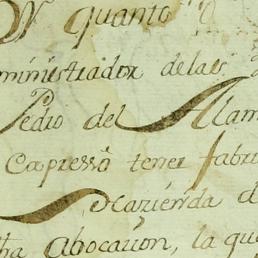 quanto
ministrador delas
Pedro del Alam
Capressò tener fabri
Hazienda d
ha Abocazion, la qu